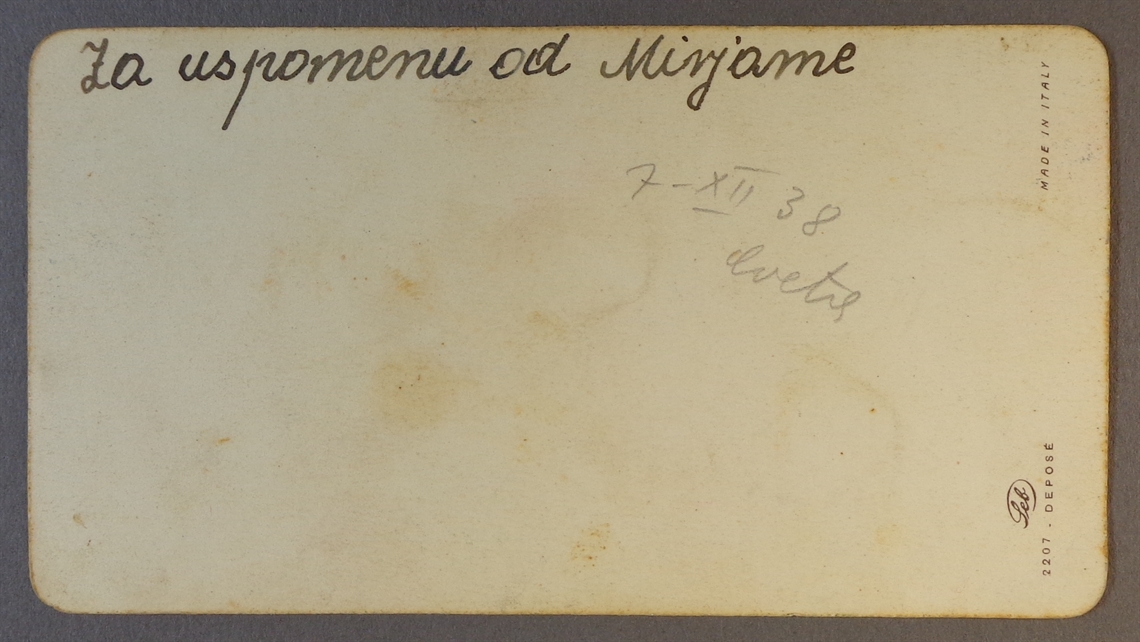 Za uspomenu od Mirjame
7-XII 38
MADE IN ITALY
Seb
2207 - DEPOSÉ